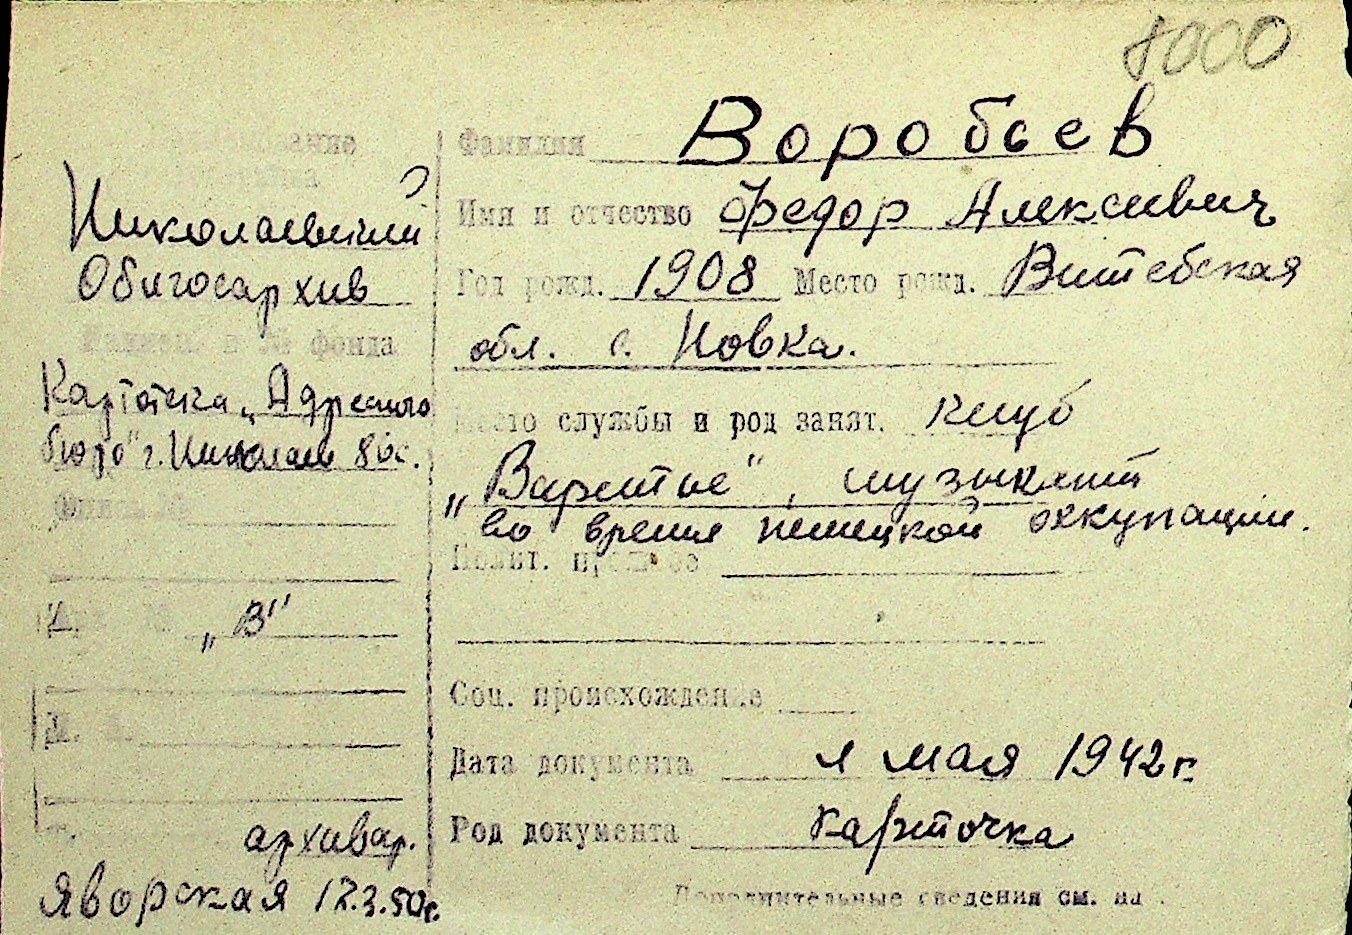 1000
Фамилия Воробьев
Имя и отчество Федор Алексеевич
Год рожд. 1908 Место рожд. Витебская
обл. с. Новка.
Место службы и род занят. клуб
„Варитье", музыкант
во время немецкой оккупации.
Полит. прошлое
Соц. происхождение
Дата документа 1 мая 1942 г.
Род документа карточка
Дополнительные сведения см. на
Николаевский
Облгосархив
Название и № фонда
Картотека „Адресного
бюро" г. Николаев
Опись №
„В"
архивар.
Яворская 12.3.50г.